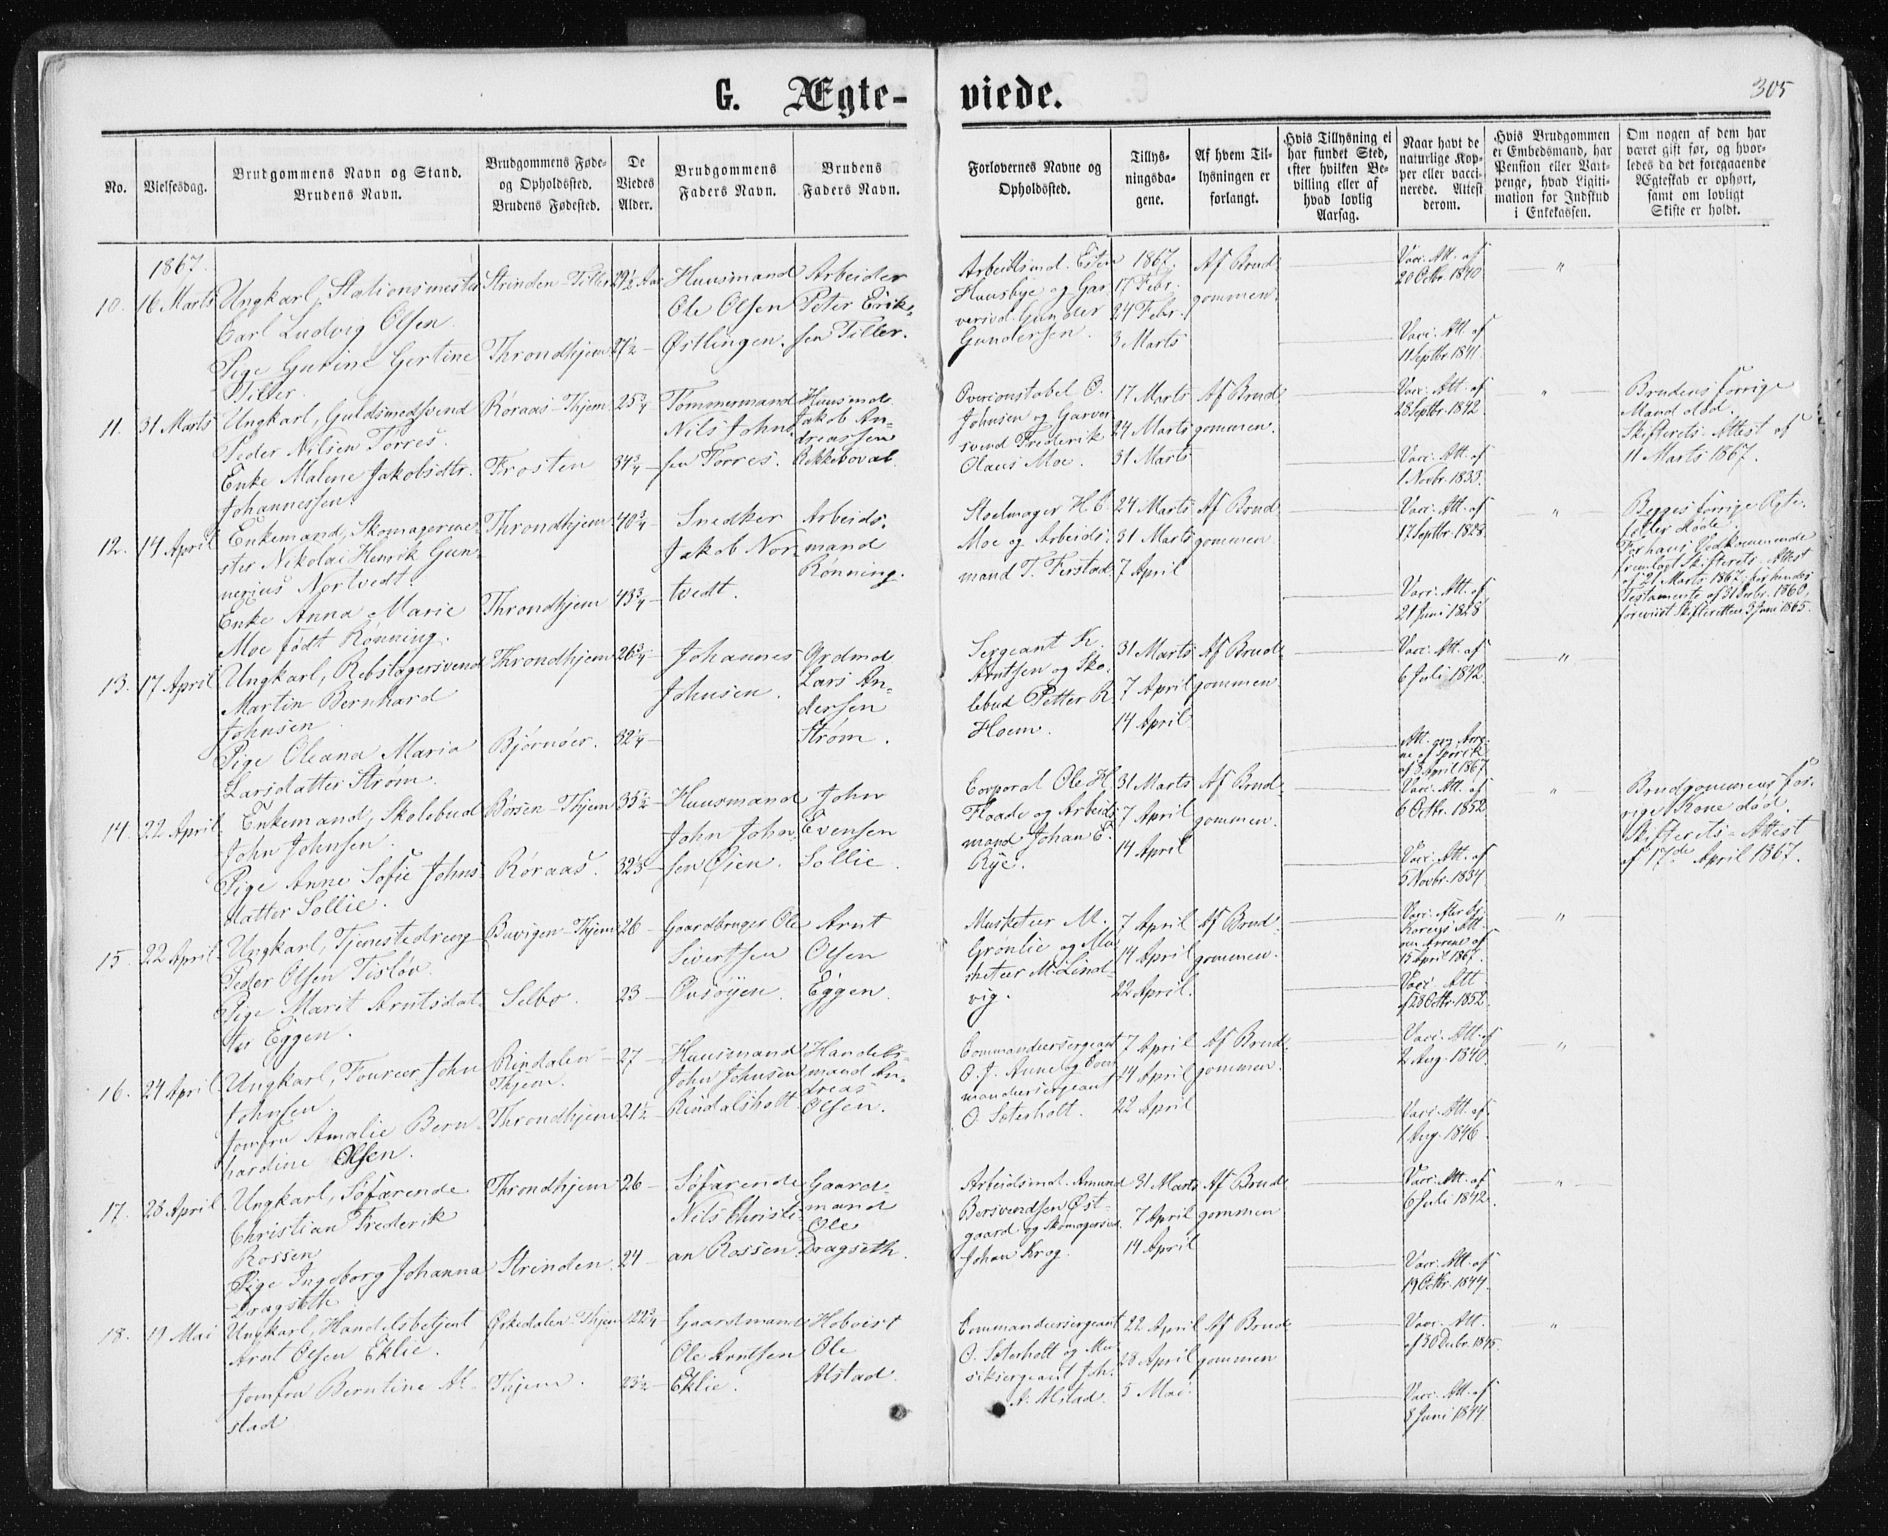 305
G. Ægte-viede.
No.
Vielsesdag.
Brudgommens Navn og Stand.
Brudens Navn.
Brudgommens Føde-
og Opholdssted.
Brudens Fødested.
De
Viedes
Alder.
Brudgommens
Faders Navn.
Brudens
Faders Navn.
Forlovernes Navne og
Opholdssted.
Tillys-
ningsda-
gene.
Af hvem Til-
lysningen er
forlangt.
Hvis Tillysning ei
har fundet Sted,
efter hvilken Be-
villing eller af
hvad lovlig
Aarsag.
Naar havt de
naturlige Kop-
per eller vacci-
nerede. Attest
derom.
Hvis Brudgommen
er Embedsmand, har
Pension eller Vart-
penge, hvad Ligiti-
mation for Indskud
i Enkekassen.
Om nogen af dem har
været gift før, og hvor-
ledes da det foregaaende
Ægteskab er ophørt,
samt om lovligt
Skifte er holdt.
1867.
10. 16 Marts
Ungkarl, Stationsmester
Carl Ludvig Olsen.
Pige Gurine Gertine
Tiller
Strinden-Tiller
Throndhjem
29½ Aar
27½ —
Huusmand
Ole Olsen
Østlingen.
Arbeider
Peter Erik-
sen Tiller.
Arbeidsmd. Esten
Huusbye og Gar-
versvd. Gunder
Gundersen.
1867.
17 Febr.
24 Febr.
3 Marts
Af Brud-
gommen.
Vacc. Att. af
20 Octbr. 1840
Vacc. Att. af
11 Septbr. 1841.
"
11. 31 Marts
Ungkarl, Guldsmedsvend
Peder Nilsen Torres.
Enke Malene Jakobsdtr.
Johannessen.
Røraas-Thjem
Frosten
25¾
34¾ —
Tømmermand
Nils John-
sen Torres.
Huusmd.
Jakob An-
dreassen
Rekkeboval.
Overconstabel O.
Johnsen og Garver-
svend Frederik
Olaus Moe.
17 Marts
24 Marts
31 Marts
Af Brud-
gommen.
Vacc. Att. af
28 Septbr. 1842.
Vacc. Att. af
1 Novbr. 1833.
"
Brudens forrige
Mand død.
Skifterets-Attest af
11 Marts 1867.
12. 14 April
Enkemand, Skomagerme-
ster Nikolai Henrik Gun-
nerius Nortvedt
Enke Anna Marie
Moe født Rønning.
Throndhjem
Throndhjem
40¾ —
43¾ —
Snedker
Jakob Nor-
tvedt.
Arbeids-
mand
Rønning.
Stoelmager H. C.
Moe og Arbeids-
mand T. Ferstad
24 Marts
31 Marts
7 April
Af Brud-
gommen.
Vacc. Att. af
17 Septbr. 1828.
Vacc. Att. af
21 Juni 1828.
"
Begges forrige Ægte-
feller døde.
For hans Vedkommende
fremlagt Skifterets-Attest
af 21 Marts 1867, for hendes
Testamente af 31 Decbr. 1860,
foreviist Skifteretten 3 Juni 1865.
13. 17 April
Ungkarl, Rebslagersvend
Martin Bernhard
Johnsen
Pige Oleana Maria
Larsdatter Strøm.
Throndhjem
Bjørnøer.
26¾ —
32¼ —
Johannes
Johnsen.
Grdmd
Lars An-
dersen
Strøm.
Sergeant K.
Arntsen og Sko-
lebud Petter R.
Hoem.
31 Marts
7 April
14 April
Af Brud-
gommen.
Vacc. Att. af
6 Juli 1842.
af 3 April 1867.
"
14. 22 April
Enkemand, Skolebud
John Johnsen.
Pige Anne Sofie Johns-
datter Sollie.
Børsen-Thjem
Røraas.
35½ —
32½ —
Huusmand
John John-
sen Øien.
John
Evensen
Sollie.
Corporal Ole H.
Flaade og Arbeids-
mand Johan E.
Rye.
31 Marts
7 April
14 April
Af Brud-
gommen.
Vacc. Att. af
6 Octbr. 1852.
Vacc. Att. af
5 Novbr. 1834.
"
Brudgommens for-
rige Kone død.
Skifterets-Attest
af 17de April 1867.
15. 22 April
Ungkarl, Tjenestedreng
Peder Olsen Tisløv.
Pige Marit Arntsdat-
ter Eggen.
Buvigen-Thjem
Selbo.
26 —
23 —
Gaardbruger Ole
Sivertsen
Onsøyen.
Arnt
Olsen
Eggen.
Musketeer M.
Grønlie og Mu-
sketeer M. Lind-
vig.
7 April
14 April
22 April.
Af Brud-
gommen.
15 April 1867.
Vacc. Att.
af 28 Octbr. 1852.
"
16. 24 April
Ungkarl, Foureer John
Johnsen
Jomfru Amalie Bern-
hardine Olsen.
Rindalen-
Thjem.
Throndhjem
27 —
21½
Huusmand
John Johnsen
Rindalsholt
Handels-
mand An-
dreas
Olsen.
Commandeersergeant
O. J. Aune og Com-
mandeersergeant
O. Sæterholt.
7 April
14 April
22 April
Af Brud-
gommen.
Vacc. Att. af
2 Aug. 1840.
Vacc. Att. af
1 Aug. 1846.
"
17. 28 April
Ungkarl, Søfarende
Christian Frederik
Rossen
Pige Ingeborg Johanna
Dragseth
Throndhjem
Strinden.
26 —
24 —
Søfarende
Nils Christi-
an Rossen
Gaard-
mand
Ole
Dragseth.
Arbeidsmd. Amund
Bersvendsen Øst-
gaard og Skomagersvd.
Johan Krog.
31 Marts
7 April
14 April
Af Brud-
gommen
Vacc. Att. af
6 Juli 1842.
Vacc. Att. af
19 Octbr. 1844.
"
18. 19 Mai
Ungkarl, Handelsbetjent
Arnt Olsen Eklie.
Jomfru Berntine Al-
stad
Ørkedalen-Thjem
Thjem.
22¾
23½ —
Gaardmand
Ole Arntsen
Eklie.
Hoboist
Ole
Alstad.
Commandeersergeant
O. Sæterholt og Mu-
siksergeant Joh.
A. Alstad.
22 April
28 April
5 Mai.
Af Brud-
gommen
Vacc. Att.
af 30 Decbr. 1845.
Vacc. Att. af
8 Juni 1844.
"